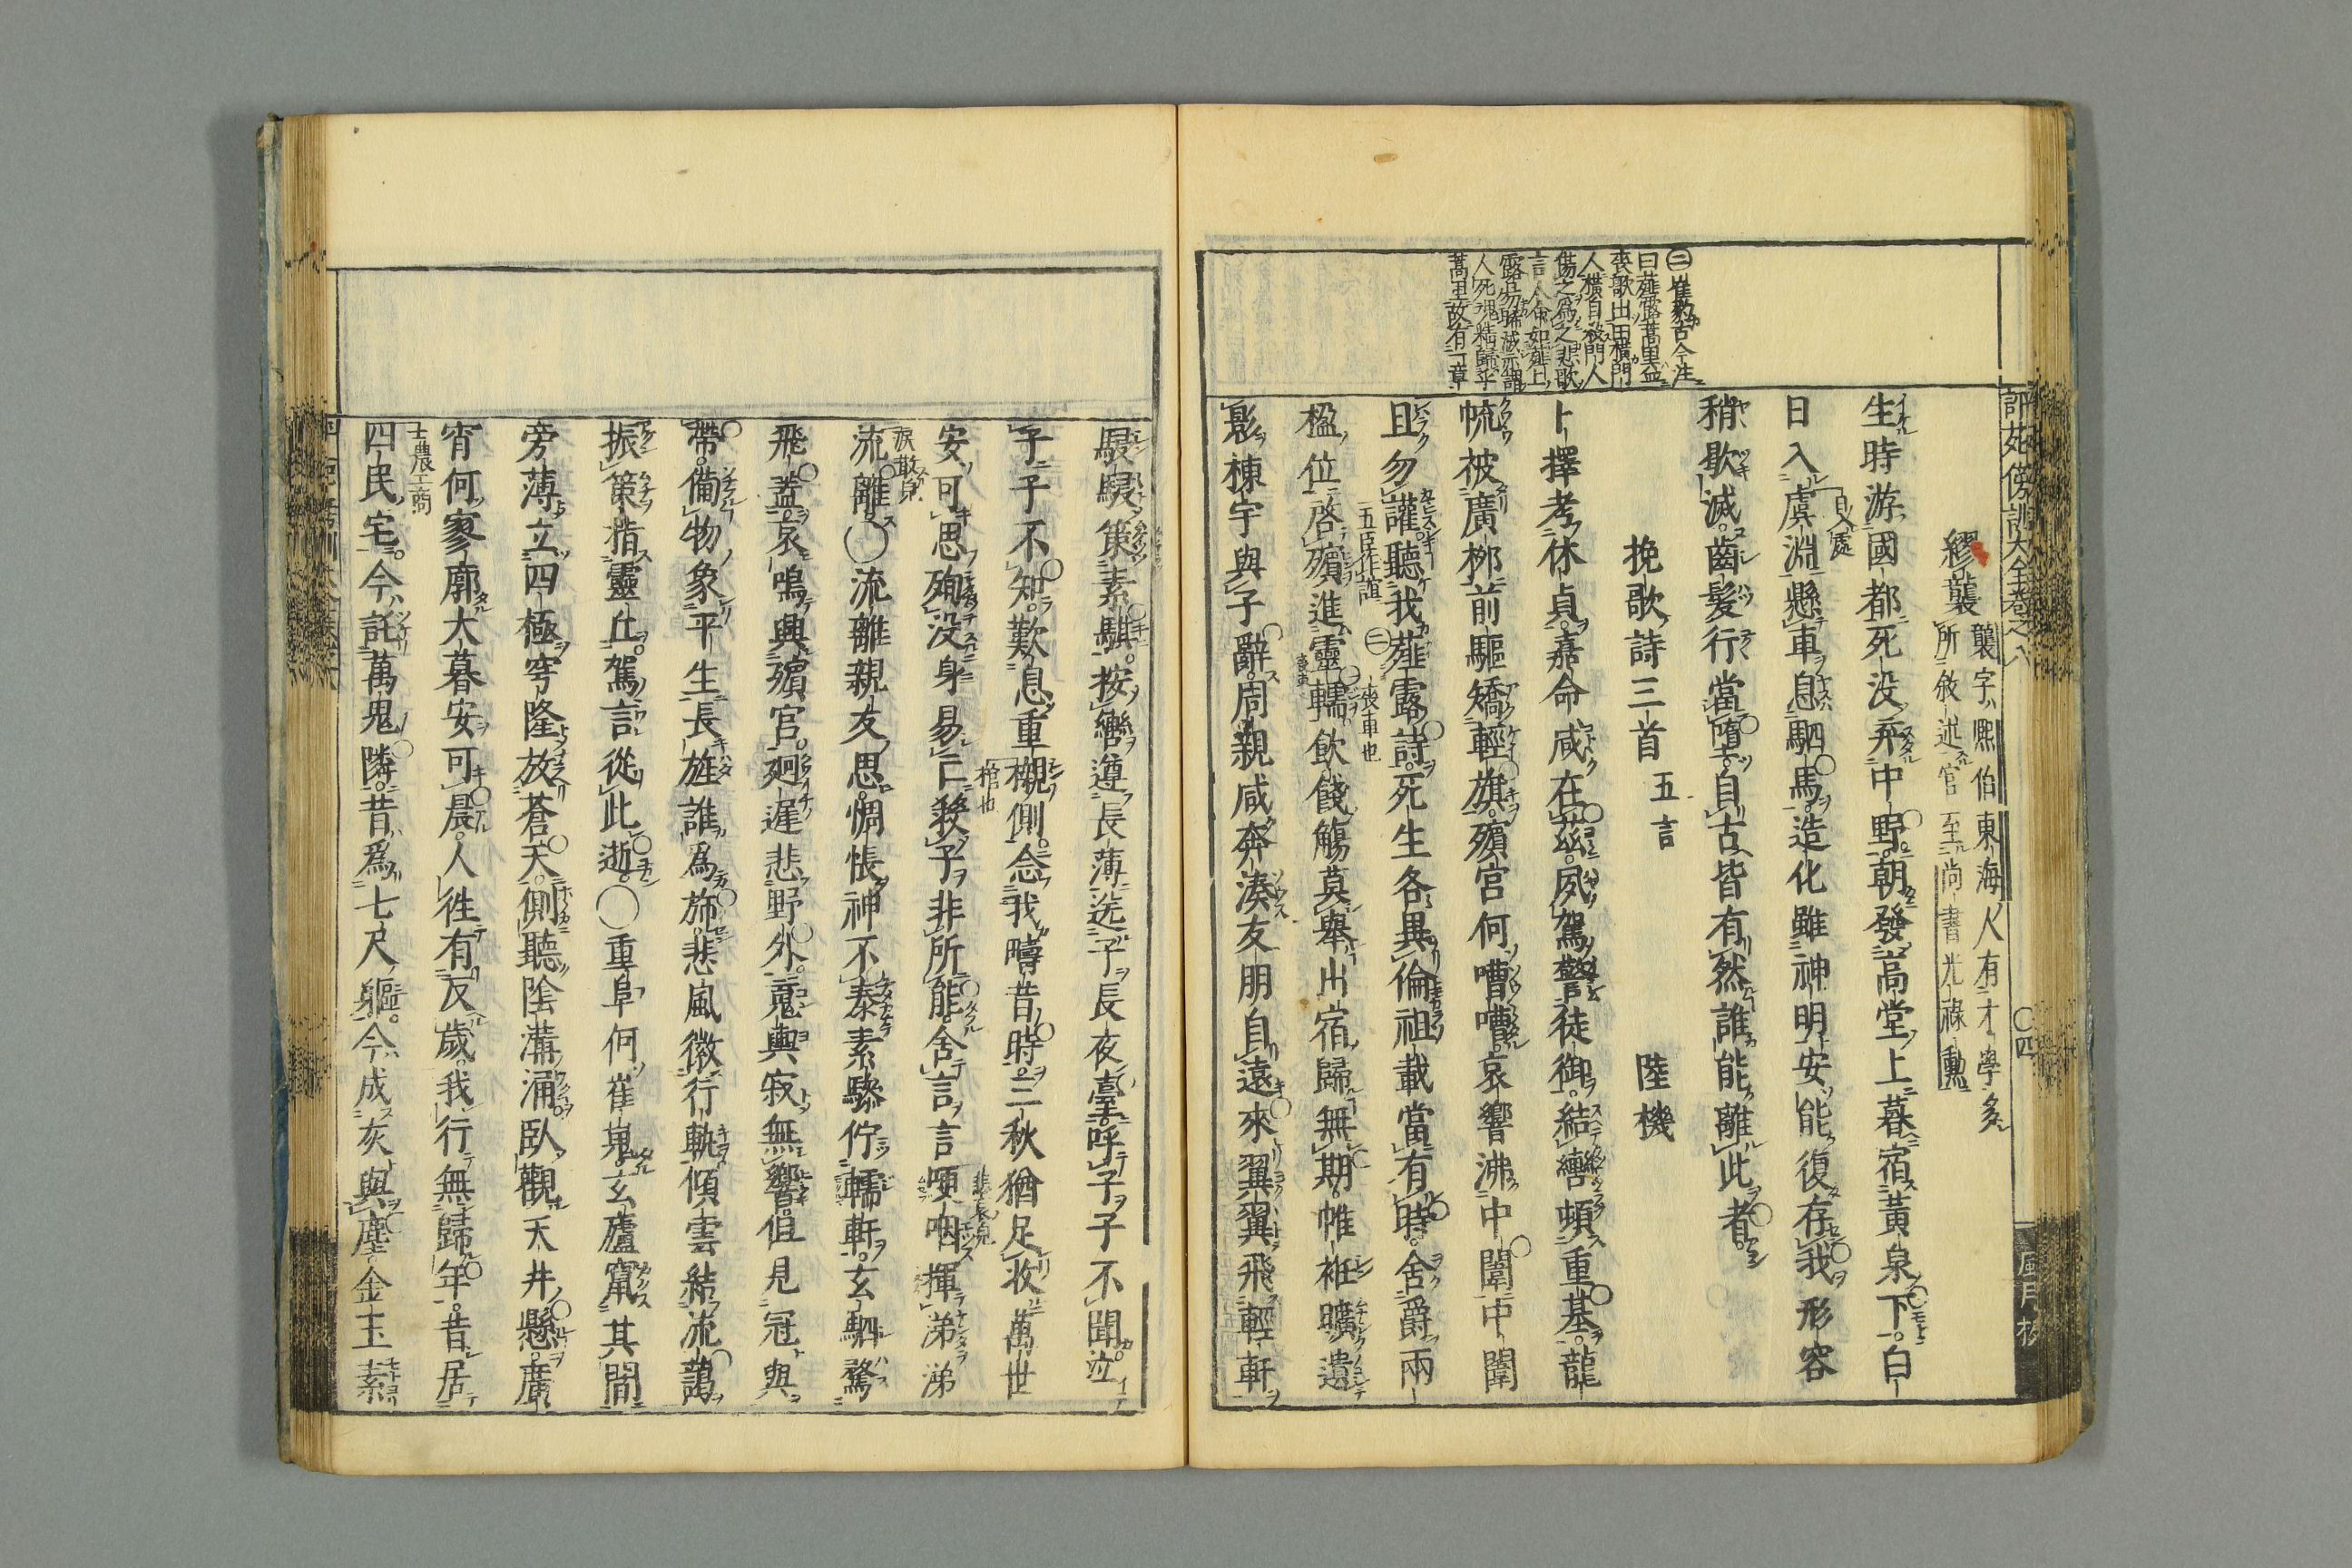 繆襲 襲字熙伯東海人有才學多
所敘述官至尚書光祿勳
生時游國都死没弃中野朝發高堂上暮宿黃泉下白
日入虞淵懸車息駟馬造化雖神明安能復存我形容
稍歇滅齒髮行當墮自古皆有然誰能離此者
挽歌詩三首 五言 陸機
卜擇考休貞嘉命咸在茲夙駕警徒御結轡頓重基龍
㡃被廣柳前驅矯輕旗殯宮何嘈嘈哀響沸中闈中闈
且勿讙聽我薤露詩死生各異倫祖載當有時舍爵兩
楹位啓殯進靈轜飲餞觴莫舉出宿歸無期帷袵曠遺
影棟宇與子辭周親咸奔湊友朋自遠來翼翼飛輕軒
㊁崔豹古今注
曰薤露蒿里並
喪歌出田橫門
人橫自殺門人
傷之爲之悲歌
言人命如薤上
露易晞滅亦謂
人死魂精歸乎
蒿里故有二章
五臣作誼
喪車也
駸駸策素騏按轡遵長薄送子長夜臺呼子子不聞泣
子子不知歎息重櫬側念我疇昔時三秋猶足收萬世
安可思殉没身易亡救子非所能舍言言哽咽揮涕涕
流離〇流離親友思惆悵神不泰素驂佇轜軒玄駟騖
飛蓋哀鳴興殯宮廻遲悲野外䰟輿寂無響但見冠與
帶備物象平生長旌誰爲斾悲風徽行軌傾雲結流藹
振策指靈丘駕言從此逝〇重阜何崔嵬玄廬竄其間
旁薄立四極穹隆放蒼天側聽陰溝涌臥觀天井懸廣
宵何寥廓大暮安可晨人徃有反歲我行無歸年昔居
四民宅今託萬鬼隣昔爲七尺軀今成灰與塵金玉素
棺也
淚散皃
士農工商
評苑傍訓大全卷之八
〇四